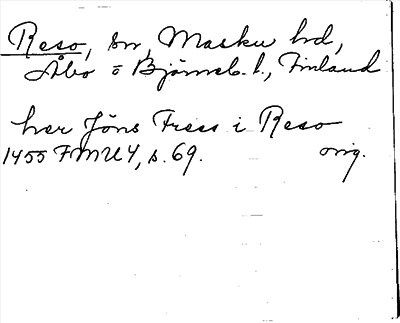 Reso, sn, Masku hd,
Åbo o Björneb. l., Finland
her Jöns Fress i Reso
1455 FMU 4, s. 69. orig.